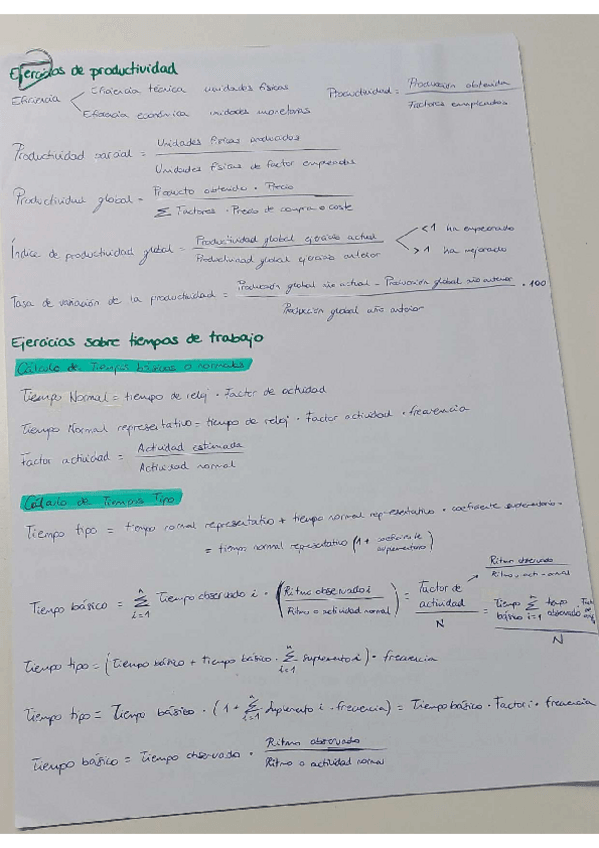 Ejercicios de productividad
Eficiencia técnica unidades físicas
Eficiencia
Eficacia económica unidades monetarias
Productividad = Producción obtenida
Factores empleados
Productividad parcial = Unidades físicas producidas
Unidades físicas de factor empleadas
Productividad global = Producto obtenido · Precio
Σ Factores · Precio de compra o coste
Índice de productividad global = Productividad global ejercicio actual
Productividad global ejercicio anterior
<1 ha empeorado
>1 ha mejorado
Tasa de variación de la productividad = Producción global año actual - Producción global año anterior · 100
Producción global año anterior
Ejercicios sobre tiempos de trabajo
Cálculo de Tiempos básicos o normales
Tiempo Normal = tiempo de reloj · Factor de actividad
Tiempo Normal representativo = tiempo de reloj · Factor actividad · frecuencia
Factor actividad = Actividad estimada
Actividad normal
Cálculo de Tiempos Tipo
Tiempo tipo = tiempo normal representativo + tiempo normal representativo · coeficiente suplementario =
= tiempo normal representativo (1 + coeficiente suplementario)
Tiempo básico = Σ n i=1 Tiempo observado i · (Ritmo observado i / Ritmo o actividad normal) = Factor de actividad / N
Ritmo observado
= Tiempo básico Σ n i=1 tiempo observado / N
Tiempo tipo = (Tiempo básico + tiempo básico · Σ n i=1 suplemento i) · frecuencia
Tiempo tipo = Tiempo básico · (1 + Σ n i=1 Suplemento i · frecuencia) = Tiempo básico · Factor i · frecuencia
Tiempo básico = Tiempo observado · Ritmo observado
Ritmo o actividad normal